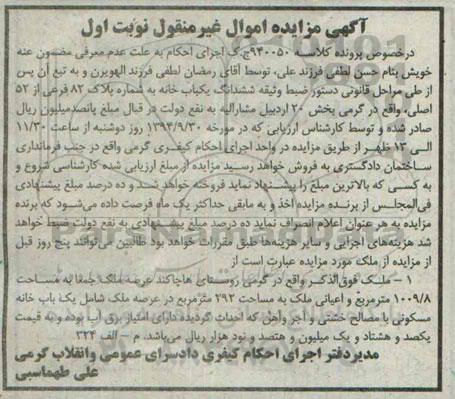 آگهی مزایده اموال غیرمنقول نوبت اول
درخصوص پرونده کلاسه ۹۴۰۰۵۰ج.ک اجرای احکام به علت عدم معرفی مضمون عنه
خویش بنام حسن لطفی فرزند علی، توسط آقای رمضان لطفی فرزند الهویرن و به تبع آن پس
از طی مراحل قانونی دستور ضبط وثیقه ششدانگ یکباب خانه به شماره پلاک ۸۲ فرعی از ۵۲
اصلی، واقع در گرمی بخش ۲۰ اردبیل مشارالیه به نفع دولت در قبال مبلغ پانصدمیلیون ریال
صادر شده و توسط کارشناس ارزیابی که در مورخه ۱۳۹۴/۹/۳۰ روز دوشنبه از ساعت ۱۱/۳۰
الی ۱۳ ظهر از طریق مزایده در واحد اجرای احکام کیفری گرمی واقع در جنب فرمانداری
ساختمان دادگستری به فروش خواهد رسید مزایده از مبلغ ارزیابی شده کارشناسی شروع و
به کسی که بالاترین مبلغ را پیشنهاد نماید فروخته خواهد شد و ده درصد مبلغ پیشنهادی
فی‌المجلس از برنده مزایده اخذ و به مابقی حداکثر یک ماه فرصت داده می‌شود که برنده
مزایده به هر عنوان اعلام انصراف نماید ده درصد مبلغ پیشنهادی به نفع دولت ضبط خواهد
شد هزینه‌های اجرایی و سایر هزینه‌ها طبق مقررات خواهد بود طالبین می‌توانند پنج روز قبل
از مزایده از ملک مورد مزایده عبارت است از
۱ – ملک فوق‌الذکر واقع در گرمی روستای هاچاکند عرصه ملک جمعا به مساحت
۱۰۰۹/۸ مترمربع و اعیانی ملک به مساحت ۲۹۲ مترمربع در عرصه ملک شامل یک باب خانه
مسکونی با مصالح خشتی و آجر وآهن که احداث گردیده دارای امتیاز برق آب بوده و به قیمت
یکصد و هشتاد و یک میلیون و هفتصد و نود هزار ریال می‌باشد. م – الف ۳۲۴
مدیردفتر اجرای احکام کیفری دادسرای عمومی وانقلاب گرمی
علی طهماسبی